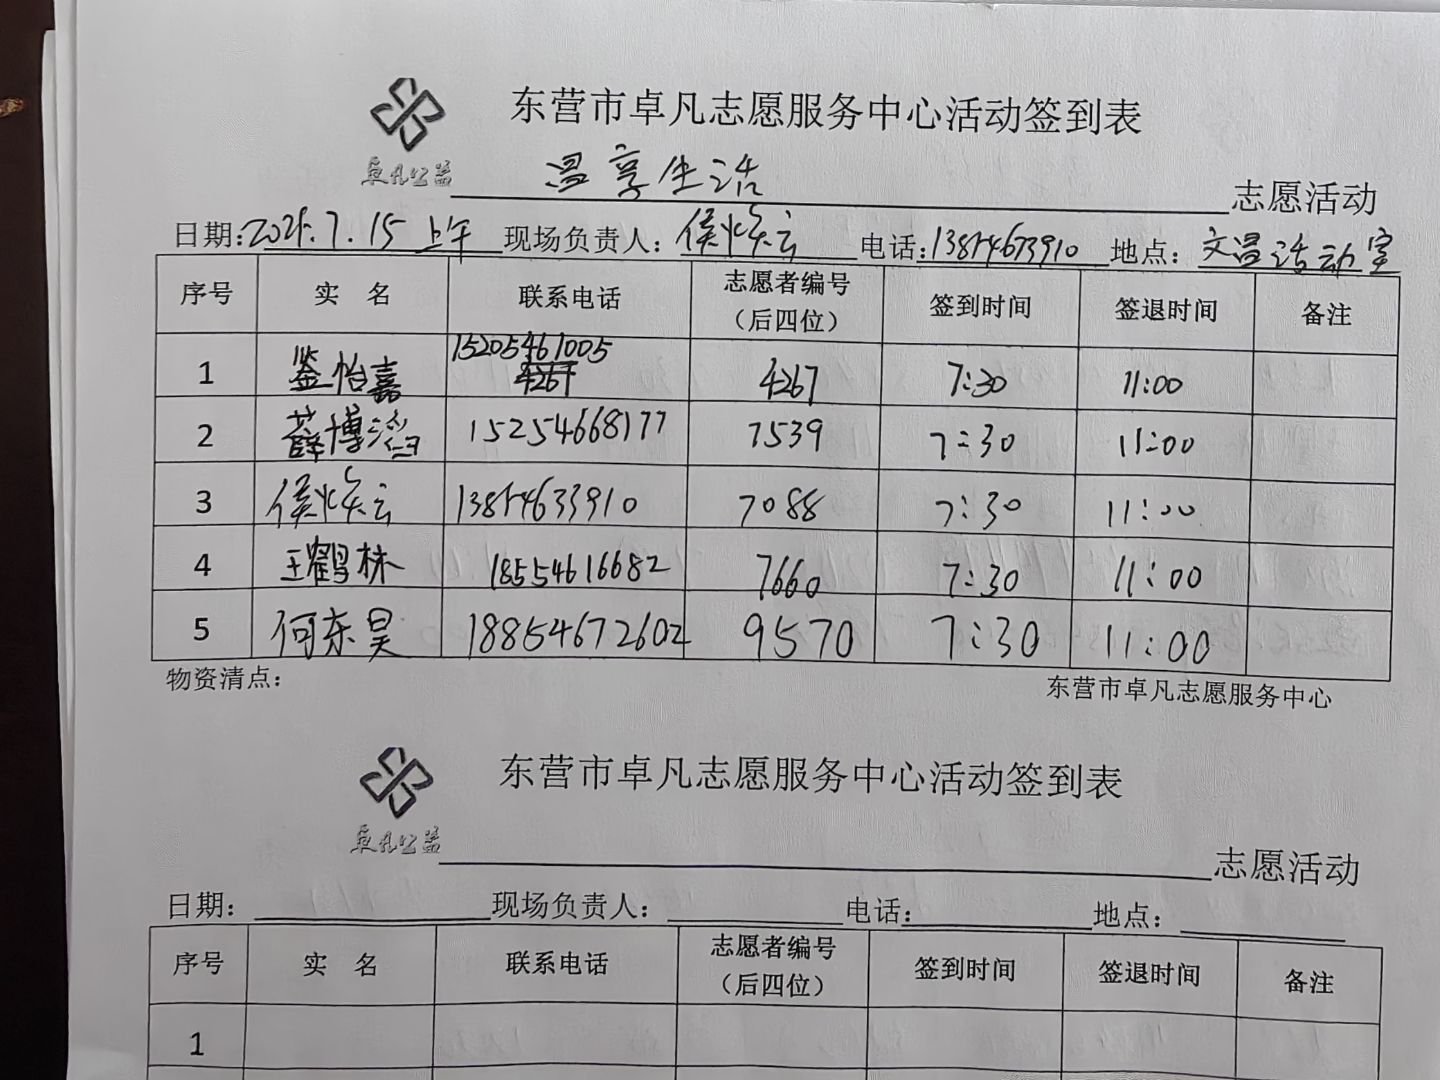 东营市卓凡志愿服务中心活动签到表
卓凡公益
温享生活 志愿活动
日期: 7.15 上午 现场负责人: 侯焕云 电话: 地点: 文温活动室
序号 实 名 联系电话 志愿者编号（后四位） 签到时间 签退时间 备注
1 怡嘉 15205461005 4267 7:30 11:00
2 薛博滔 15254668177 7539 7:30 11:00
3 侯焕云 13854633910 7088 7:30 11:00
4 王鹤林 18554616682 7660 7:30 11:00
5 何东昊 18854672602 9570 7:30 11:00
物资清点： 东营市卓凡志愿服务中心
东营市卓凡志愿服务中心活动签到表
卓凡公益
志愿活动
日期: 现场负责人: 电话: 地点:
序号 实 名 联系电话 志愿者编号（后四位） 签到时间 签退时间 备注
1